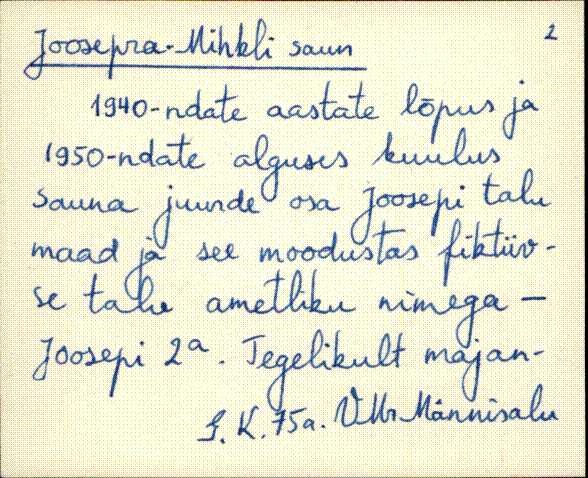 Joosepra-Mihkli saun
2
1940-ndate aastate lõpus ja
1950-ndate alguses kuulus
sauna juurde osa Joosepi talu
maad ja see moodustas fiktiiv-
se talu ametliku nimega –
Joosepi 2a. Tegelikult majan-
S. K. 75a. V. Mr. Männisalu